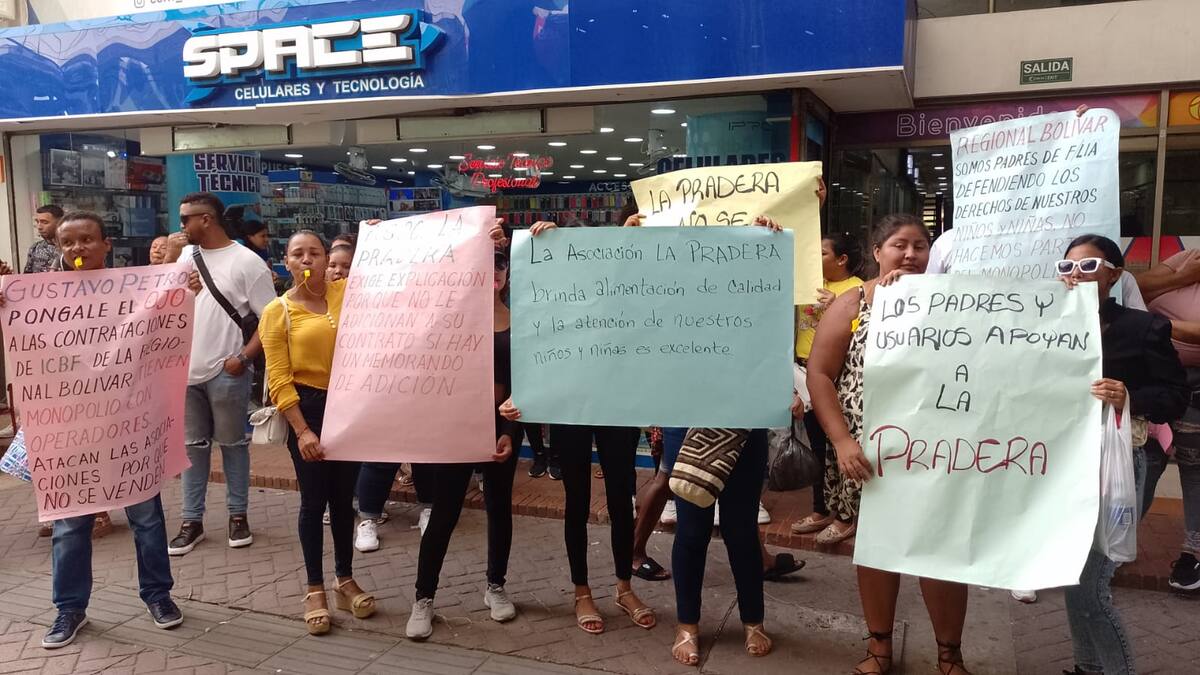 SPACE
CELULARES Y TECNOLOGÍA
SERVICIO
TECNICO
Servicio Técnico
Profesional
CELULARES
SALIDA
Bienvenido
GUSTAVO PETRO
PONGALE EL OJO
A LAS CONTRATACIONES
DE ICBF DE LA REGIO-
NAL BOLIVAR TIENEN
MONOPOLIO CON
OPERADORES.
ATACAN LAS ASOCIA-
CIONES POR QUE
NO SE VENDEN
LA
PRADERA
EXIGE EXPLICACIÓN
PORQUE NO LE
ADICIONAN A SU
CONTRATO SI HAY
UN MEMORANDO
DE ADICIÓN
LA PRADERA
NO SE
La Asociación LA PRADERA
brinda alimentación de calidad
y la atención de nuestros
niños y niñas es excelente.
REGIONAL BOLIVAR
SOMOS PADRES DE FLIA
DEFENDIENDO LOS
DERECHOS DE NUESTROS
NIÑOS Y NIÑAS. NO
HACEMOS PARTE
DEL MONOPOLIO
LOS PADRES Y
USUARIOS APOYAN
A
LA
PRADERA